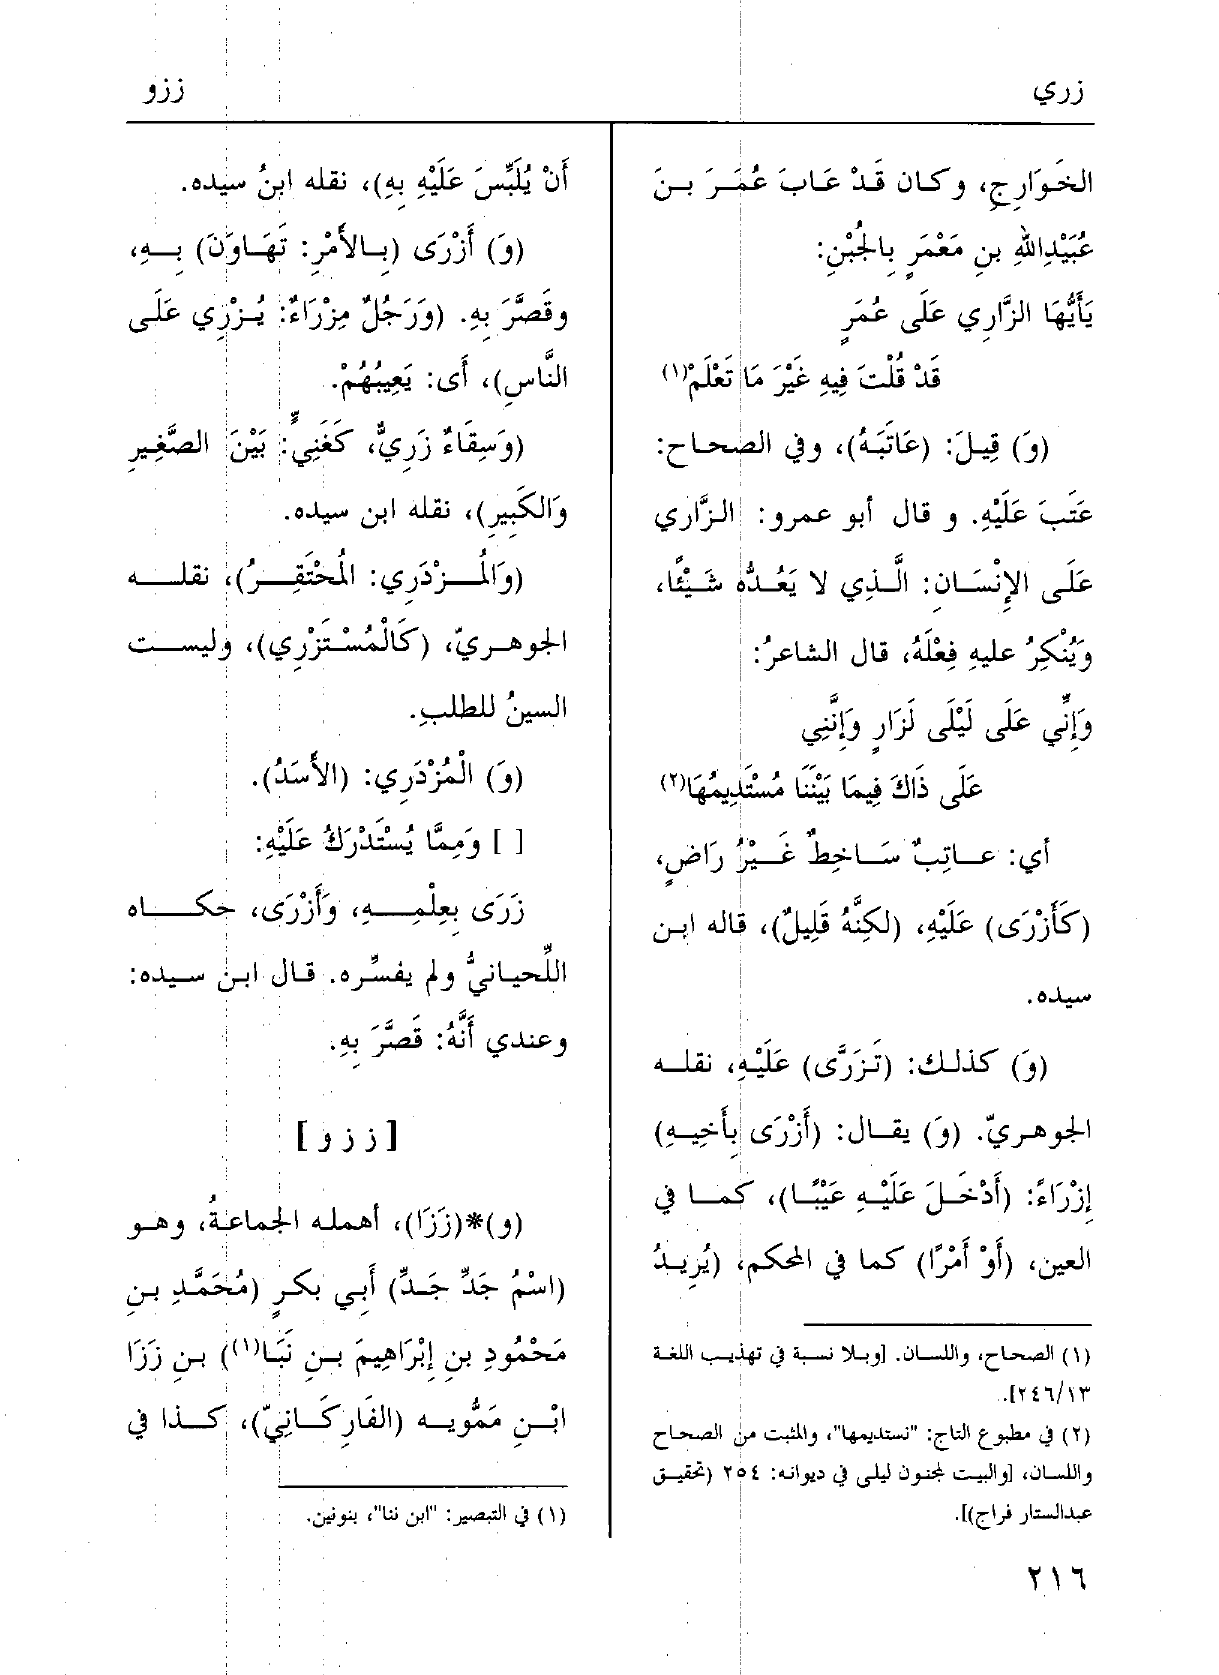 زري
ززو
الخَوَارِجِ، وكان قَدْ عَابَ عُمَرَ بنَ
عُبَيْدِاللهِ بنِ مَعْمَرٍ بِالجُبْنِ:
يَأَيُّهَا الزَّارِي عَلَى عُمَرٍ
قَدْ قُلْتَ فِيهِ غَيْرَ مَا تَعْلَمْ(١)
(وَ) قِيلَ: (عَاتَبَهُ)، وفي الصحاح:
عَتَبَ عَلَيْهِ. و قال أبو عمرو: الزَّاري
عَلَى الإِنْسَانِ: الَّذِي لا يَعُدُّه شَيْئًا،
وَيُنْكِرُ عليهِ فِعْلَهُ، قال الشاعرُ:
وَإِنِّي عَلَى لَيْلَى لَزَارٍ وَإِنَّنِي
عَلَى ذَاكَ فِيمَا بَيْنَنَا مُسْتَدِيمُهَا(٢)
أي: عاتِبٌ سَاخِطٌ غَيْرُ رَاضٍ،
(كَأَزْرَى) عَلَيْهِ، (لكِنَّهُ قَلِيلٌ)، قاله ابن
سيده.
(وَ) كذلك: (تَزَرَّى) عَلَيْهِ، نقله
الجوهريّ. (وَ) يقال: (أَزْرَى بِأَخِيهِ)
إِزْرَاءً: (أَدْخَلَ عَلَيْهِ عَيْبًا)، كما في
العين، (أَوْ أَمْرًا) كما في المحكم، (يُرِيدُ
(١) الصحاح، واللسان. [وبلا نسبة في تهذيب اللغة
٢٤٦/١٣].
(٢) في مطبوع التاج: "نستديمها"، والمثبت من الصحاح
واللسان، [والبيت لمجنون ليلى في ديوانه: ٢٥٤ (تحقيق
عبدالستار فراج)].
أَنْ يُلَبِّسَ عَلَيْهِ بِهِ)، نقله ابنُ سيده.
(وَ) أَزْرَى (بِالأَمْرِ: تَهَاوَنَ) بِهِ،
وقَصَّرَ بِهِ. (وَرَجُلٌ مِزْرَاءٌ: يُزْرِي عَلَى
النَّاسِ)، أَى: يَعِيبُهُمْ.
(وَسِقَاءٌ زَرِيٌّ، كَغَنِيٍّ: بَيْنَ الصَّغِيرِ
وَالكَبِيرِ)، نقله ابن سيده.
(وَالمُزْدَرِي: المُحْتَقِرُ)، نقله
الجوهريّ، (كَالْمُسْتَزْرِي)، وليست
السينُ للطلبِ.
(وَ) الْمُزْدَرِي: (الأَسَدُ).
[ ] وَمِمَّا يُسْتَدْرَكُ عَلَيْهِ:
زَرَى بِعِلْمِهِ، وَأَزْرَى، حكاه
اللِّحيانيُّ ولم يفسِّره. قال ابن سيده:
وعندي أَنَّهُ: قَصَّرَ بِهِ.
[ز ز و]
(و)*(زَزَا)، أهمله الجماعةُ، وهو
(اسْمُ جَدِّ جَدِّ) أَبِي بكرٍ (مُحَمَّدِ بنِ
مَحْمُودِ بنِ إِبْرَاهِيمَ بنِ نَبَا(١)) بنِ زَزَا
ابْنِ مَمُّويه (الفَارِكَانِيّ)، كذا في
(١) في التبصير: "ابن ننا"، بنونين.
٢١٦